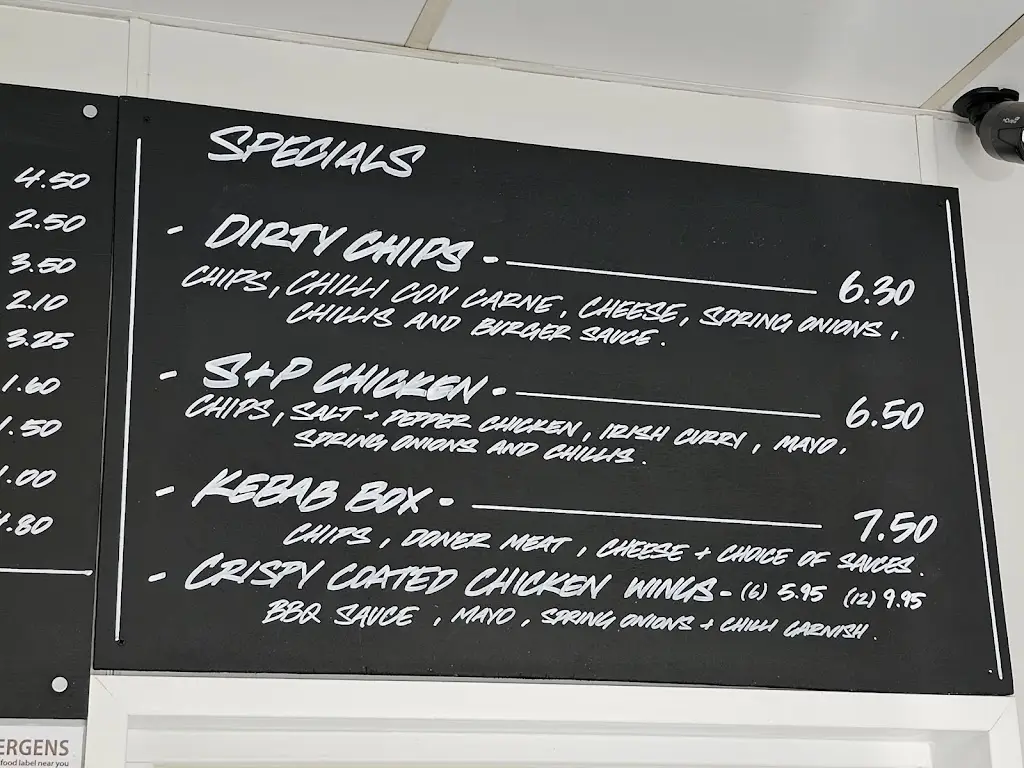 4.50
2.50
3.50
2.10
3.25
1.60
1.50
1.00
.80
SPECIALS
- DIRTY CHIPS - 6.30
CHIPS, CHILLI CON CARNE, CHEESE, SPRING ONIONS,
CHILLIS AND BURGER SAUCE.
- S+P CHICKEN - 6.50
CHIPS, SALT + PEPPER CHICKEN, IRISH CURRY, MAYO.
SPRING ONIONS AND CHILLIS.
- KEBAB BOX - 7.50
CHIPS, DONER MEAT, CHEESE + CHOICE OF SAUCES.
- CRISPY COATED CHICKEN WINGS - (6) 5.95 (12) 9.95
BBQ SAUCE, MAYO, SPRING ONIONS + CHILLI GARNISH.
ERGENS
food label near you